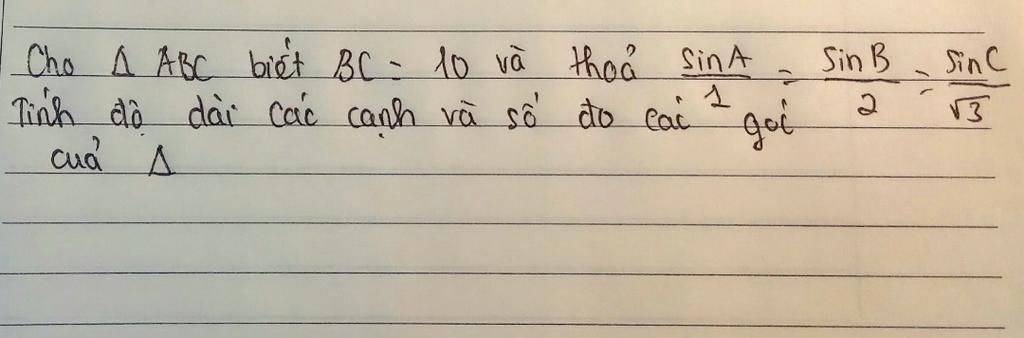 Cho Δ ABC biết BC = 10 và thoả sinA/1 = sinB/2 = sinC/√3
Tính độ dài các cạnh và số đo các goć
cuả Δ